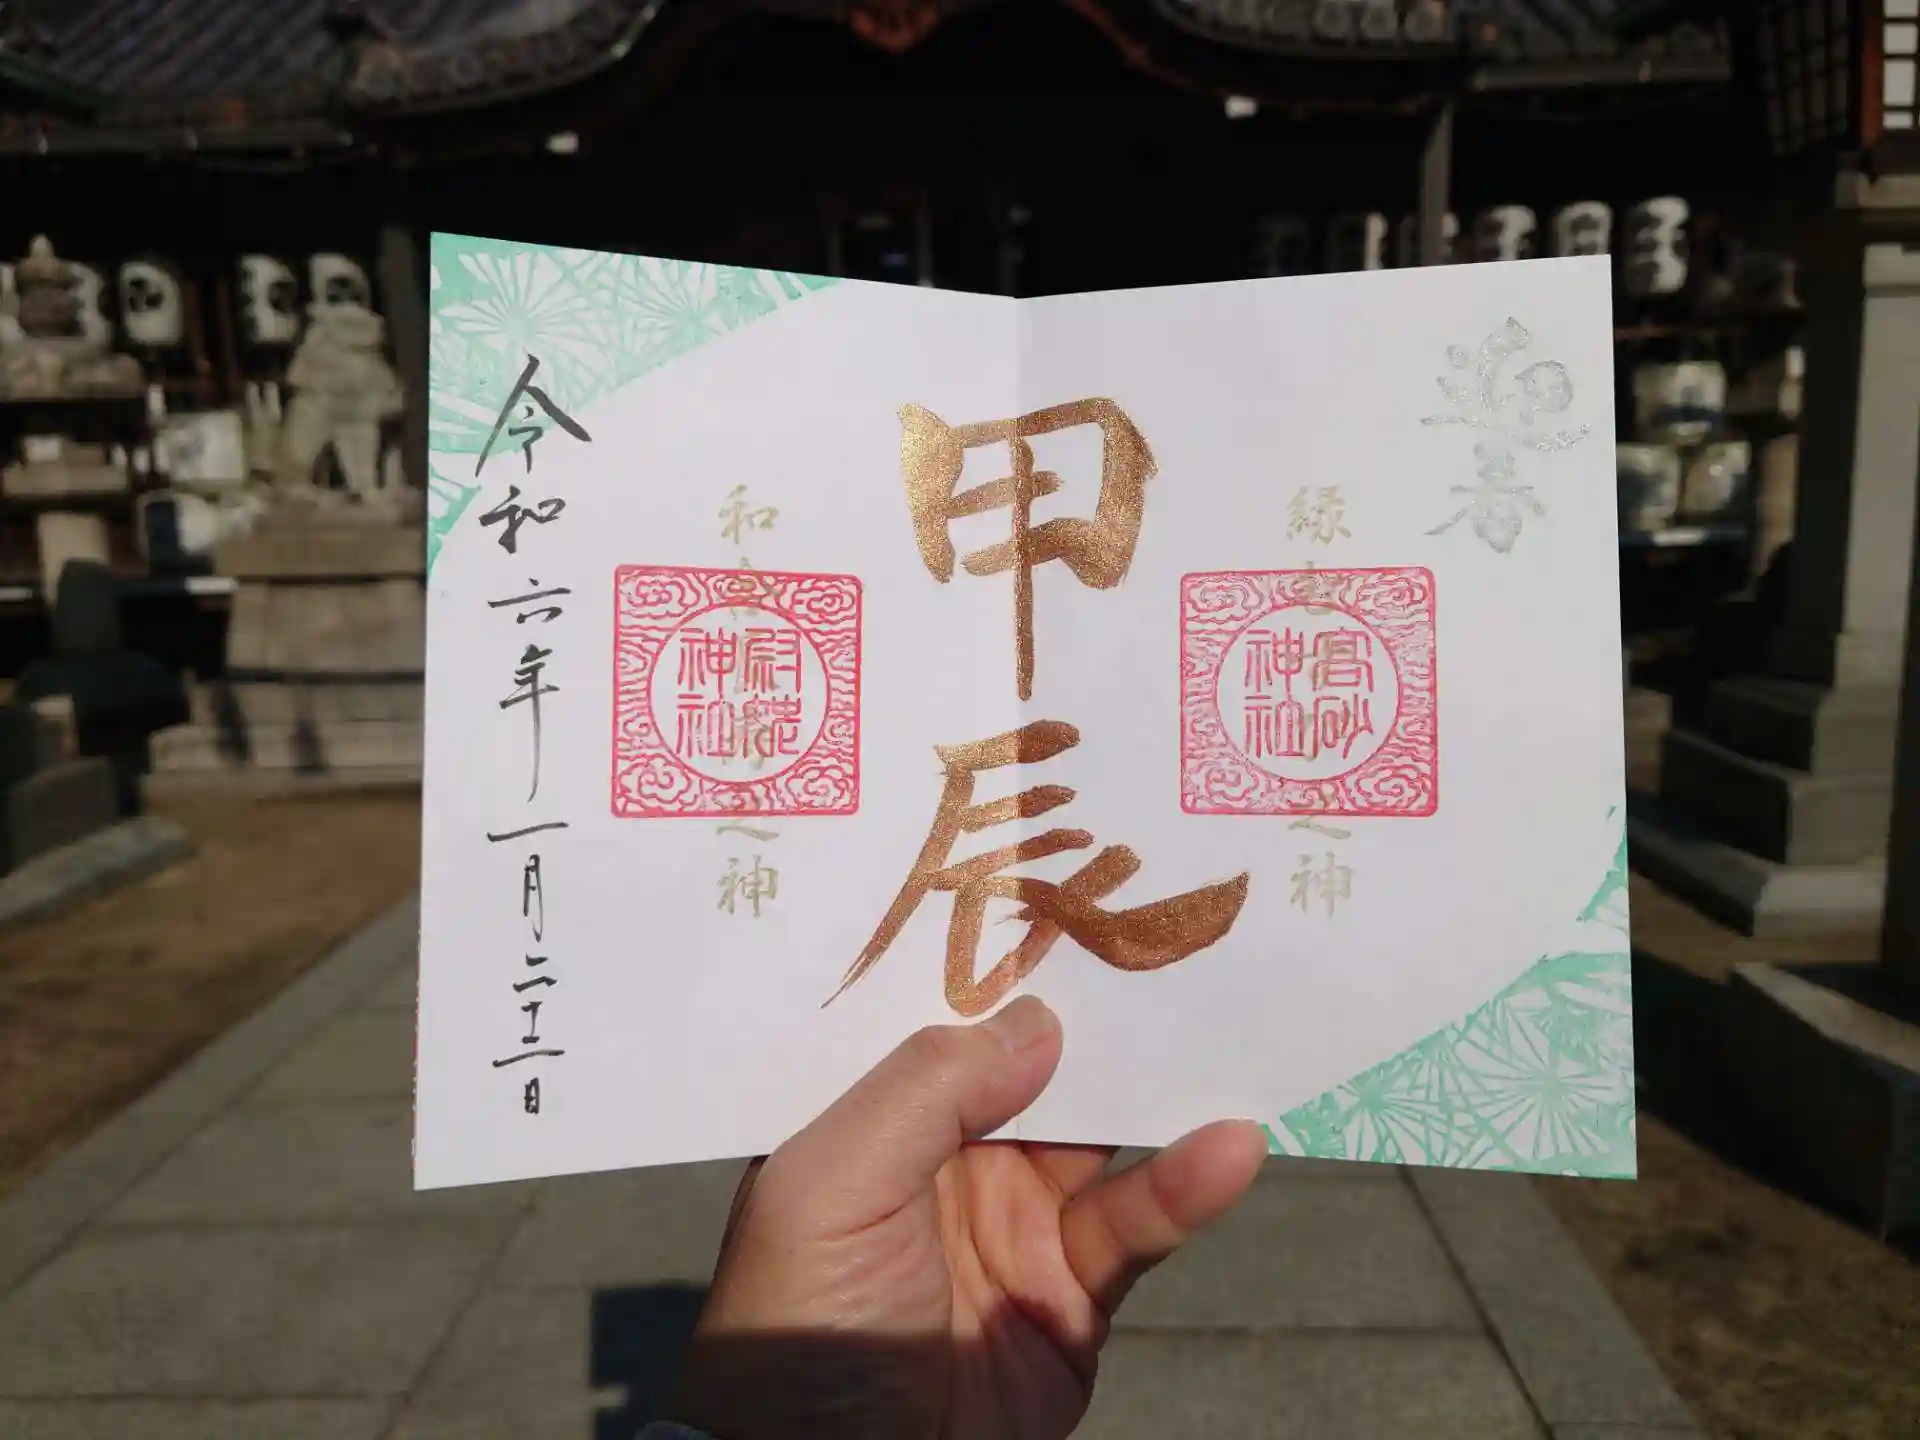 迎春
縁
之神
高砂
神社
甲辰
和
之神
尉姥
神社
令和六年一月二十三日